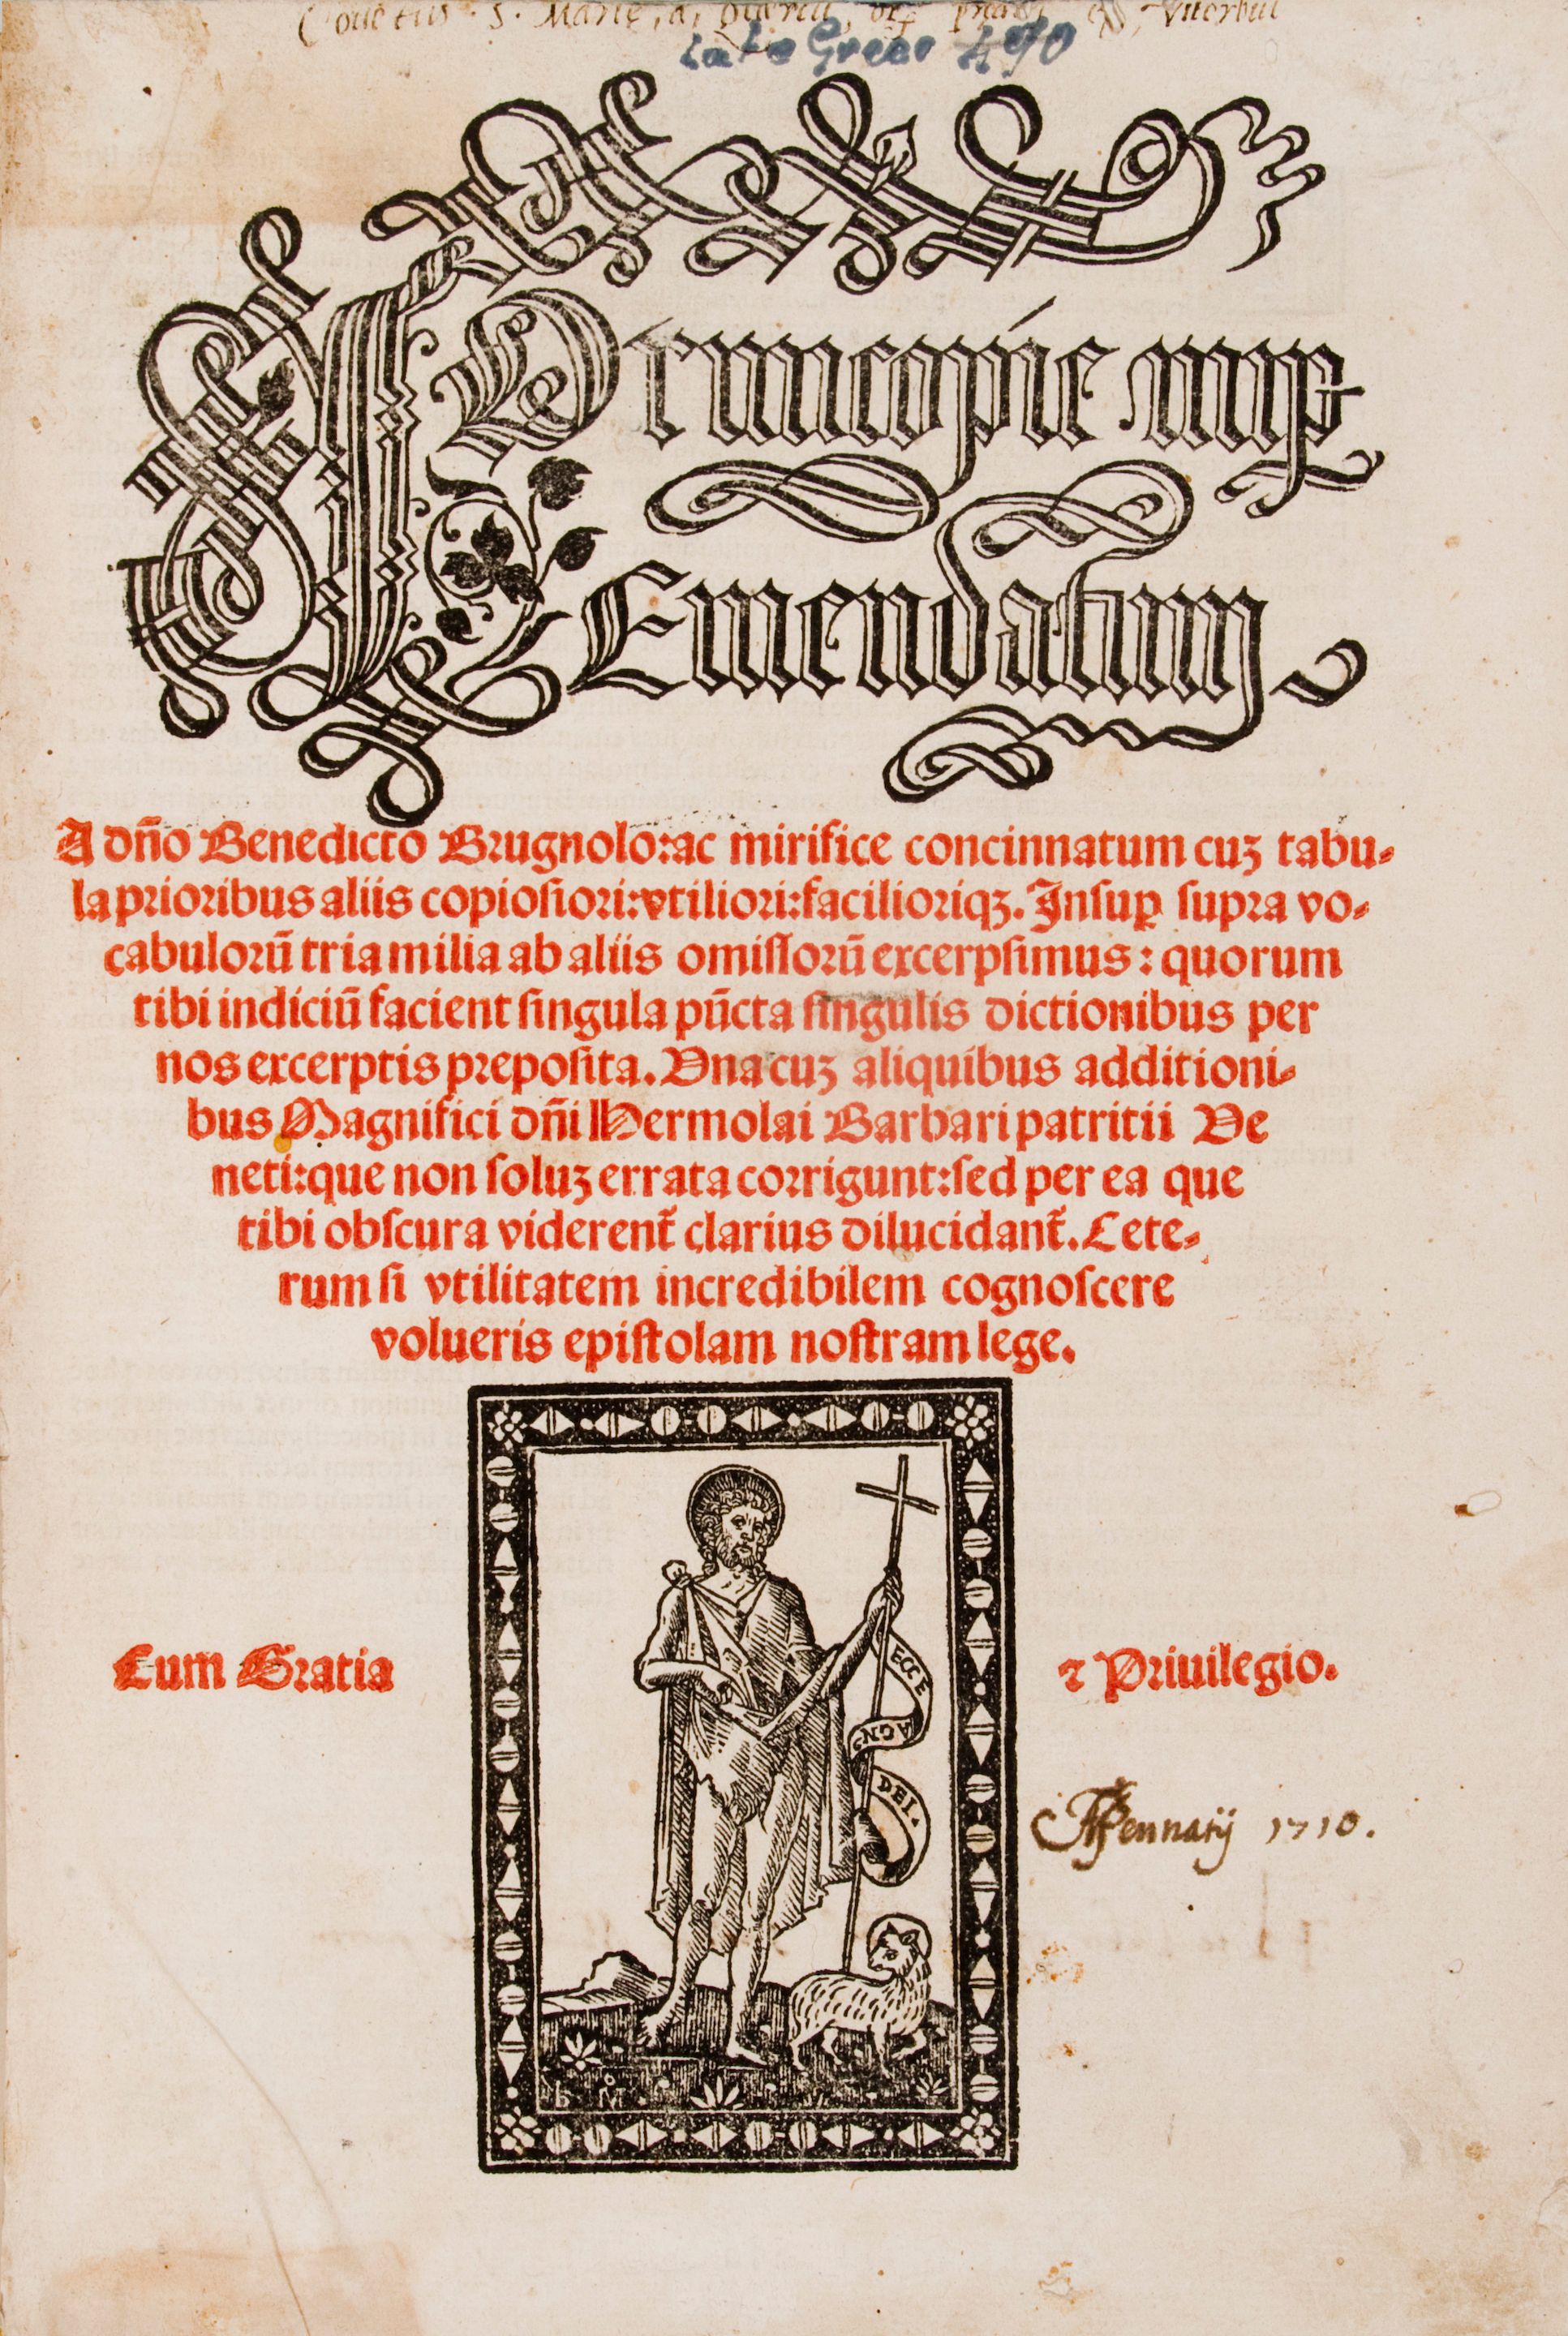 Cōuētus . S . Marię, a,
Lat e Greco 490
Cornucopie nup
Emendatum
A dño Benedicto Brugnolo:ac mirifice concinnatum cuʒ tabu-
la prioribus aliis copiosiori:vtiliori:facilioriqʒ. Insuꝑ supra vo-
cabuloꝛū tria milia ab aliis omissoꝛū excerpsimus: quorum
tibi indiciū facient singula pūcta singulis dictionibus per
nos excerptis preposita. Vna cuʒ aliquibus additioni-
bus Magnifici dñi Hermolai Barbari patritii Ve
neti:que non soluʒ errata corrigunt:sed per ea que
tibi obscura viderent̄ clarius dilucidant̄. Cete-
rum si vtilitatem incredibilem cognoscere
volueris epistolam nostram lege.
Cum Gratia ⁊ Priuilegio.
ECCE
AGNꝰ
DEI.
Pennarij 1710.
b M